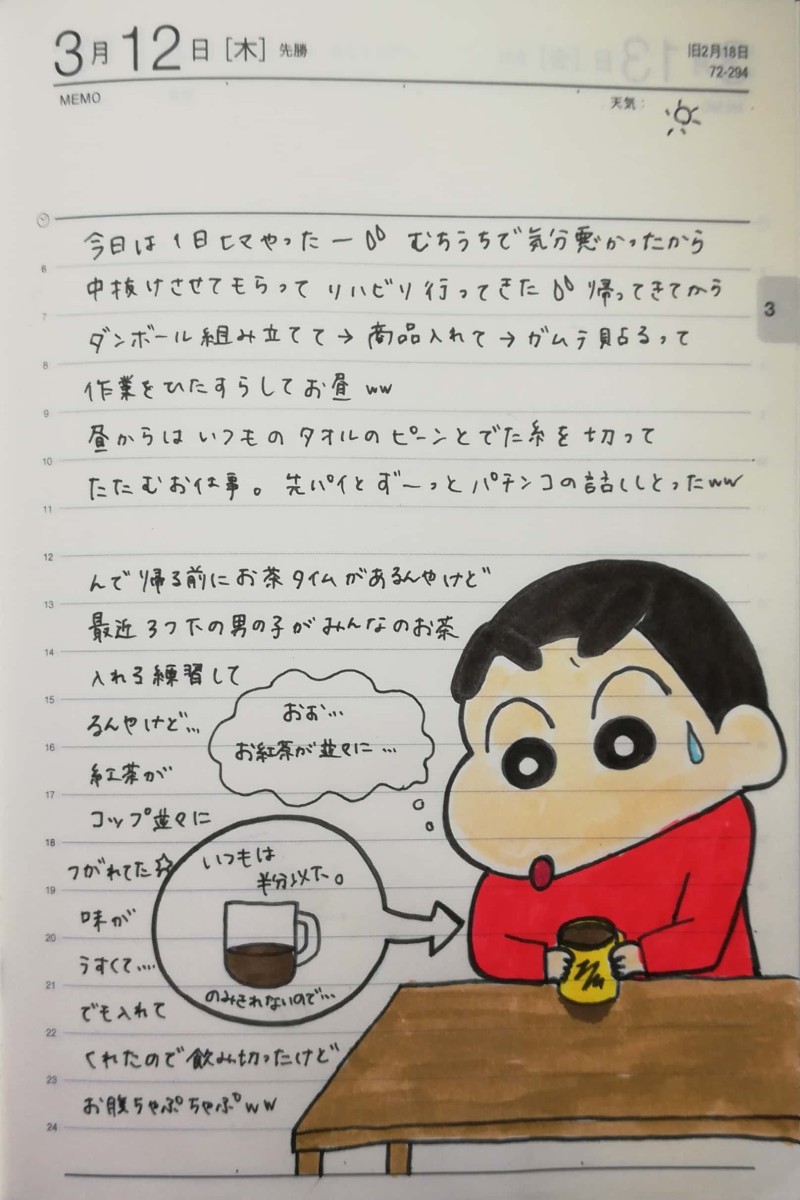 3月12日[木] 先勝
旧2月18日
72-294
MEMO
天気:
今日は1日ヒマやったー むちうちで気分悪かったから
6
中抜けさせてもらって リハビリ行ってきた 帰ってきてから
7
ダンボール組み立てて→商品入れて→ガムテ貼るって
8
作業をひたすらしてお昼ww
9
昼からはいつものタオルのピーンとでた糸を切って
10
たたむお仕事。先パイとずーっとパチンコの話ししとったww
11
12
んで帰る前にお茶タイムがあるんやけど
13
最近3つ下の男の子がみんなのお茶
14
入れる練習して
15
るんやけど…
16
紅茶が
17
コップ並々に
18
つがれてた☆
19
味が
20
うすくて....
21
でも入れて
22
くれたので飲み切ったけど
23
お腹ちゃぷちゃぷww
24
おお…
お紅茶が並々に…
いつもは
半分以下。
のみきれないので…
3